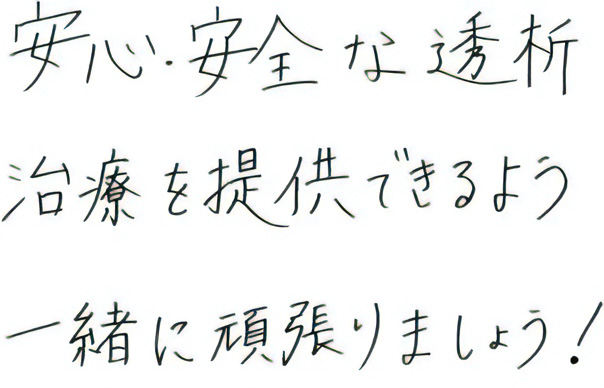 安心・安全な透析
治療を提供できるよう
一緒に頑張りましょう!